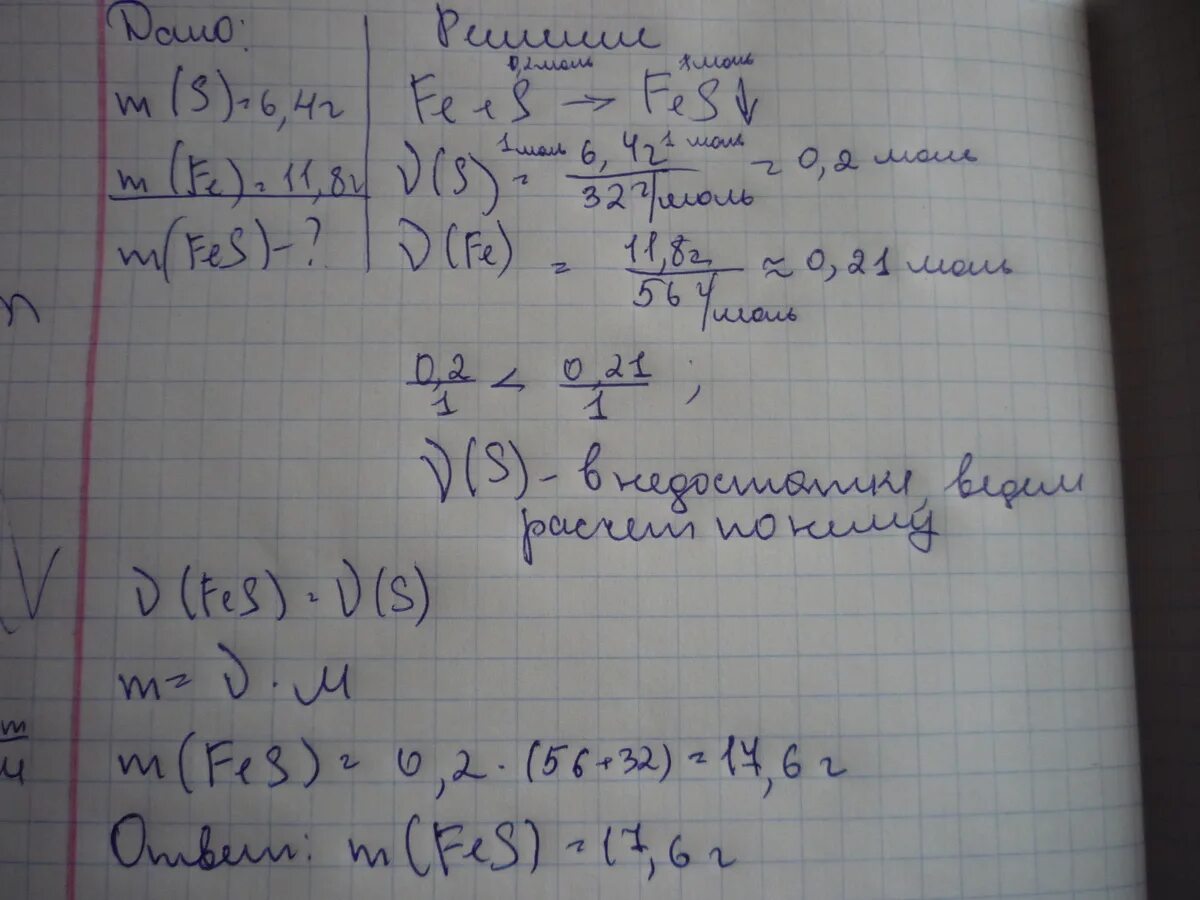 Дано:
m(S)=6,4г
m(Fe)=11,8г
m(FeS)-?
Решение
0,2моль
Fe + S → FeS↓
1моль 1 моль
ν(S) = 6,4г / 32 г/моль = 0,2 моль
ν(Fe) = 11,8г / 56 г/моль ≈ 0,21 моль
0,2/1 < 0,21/1 ;
ν(S) - в недостатке, ведем
расчет по нему
ν(FeS) = ν(S)
m = ν · M
m(FeS) = 0,2 · (56+32) = 17,6 г
Ответ: m(FeS) = 17,6 г
m